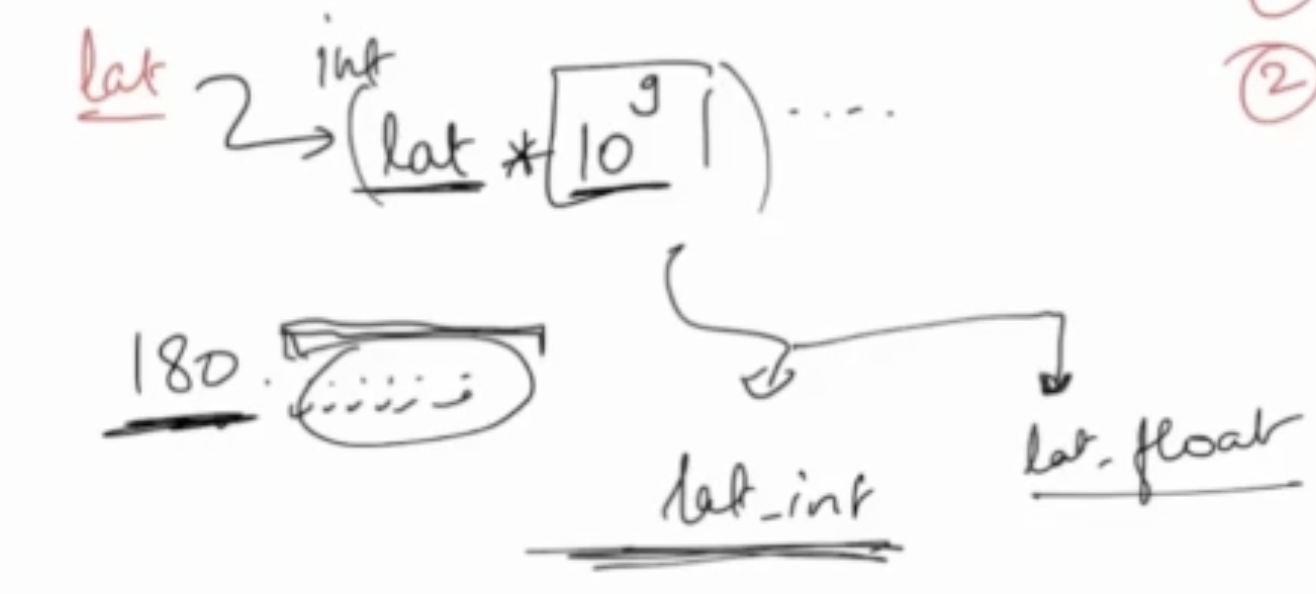 2
lat int (lat * 10^9) ....
180. .....
lat_int lat_float